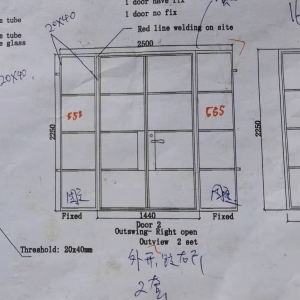 1 door have fix
1 door no fix
tube
20x40
Red line welding on site
tube
glass
2500
20x40
2250
553
555
2250
固定
固定
Fixed
1440
Fixed
Door 2
Outswing- Right open
Outview 2 set
Threshold: 20x40mm
外开,
2套